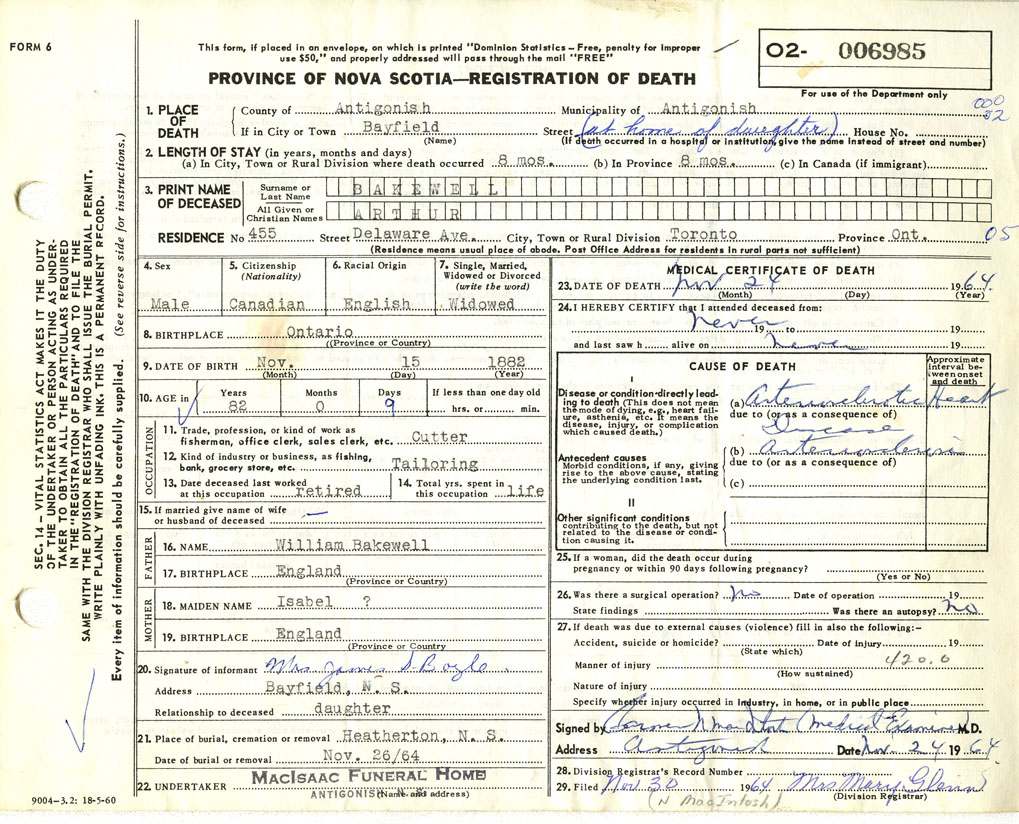 FORM 6
This form, if placed in an envelope, on which is printed "Dominion Statistics – Free, penalty for improper
use $50," and properly addressed will pass through the mail "FREE"
PROVINCE OF NOVA SCOTIA—REGISTRATION OF DEATH
O2- 006985
For use of the Department only
1. PLACE OF DEATH
County of Antigonish Municipality of Antigonish
If in City or Town Bayfield Street (at home of daughter) House No.
(Name) (If death occurred in a hospital or institution, give the name instead of street and number)
2. LENGTH OF STAY (in years, months and days)
(a) In City, Town or Rural Division where death occurred 8 mos. (b) In Province 8 mos. (c) In Canada (if immigrant)
3. PRINT NAME OF DECEASED
Surname or Last Name BAKEWELL
All Given or Christian Names ARTHUR
RESIDENCE No 455 Street Delaware Ave. City, Town or Rural Division Toronto Province Ont. 05
(Residence means usual place of abode. Post Office Address for residents in rural parts not sufficient)
4. Sex Male
5. Citizenship (Nationality) Canadian
6. Racial Origin English
7. Single, Married, Widowed or Divorced (write the word) Widowed
8. BIRTHPLACE Ontario
(Province or Country)
9. DATE OF BIRTH Nov. 15 1882
(Month) (Day) (Year)
10. AGE in Years 82 Months 0 Days 9 If less than one day old hrs. or min.
OCCUPATION
11. Trade, profession, or kind of work as
fisherman, office clerk, sales clerk, etc. Cutter
12. Kind of industry or business, as fishing,
bank, grocery store, etc. Tailoring
13. Date deceased last worked
at this occupation retired
14. Total yrs. spent in
this occupation life
15. If married give name of wife
or husband of deceased —
FATHER
16. NAME William Bakewell
17. BIRTHPLACE England
(Province or Country)
MOTHER
18. MAIDEN NAME Isabel ?
19. BIRTHPLACE England
(Province or Country)
20. Signature of informant Mrs James S. Boyle
Address Bayfield, N. S.
Relationship to deceased daughter
21. Place of burial, cremation or removal Heatherton, N. S.
Date of burial or removal Nov. 26/64
22. UNDERTAKER MACISAAC FUNERAL HOME
ANTIGONISH (Name and address)
MEDICAL CERTIFICATE OF DEATH
23. DATE OF DEATH Nov 24 1964
(Month) (Day) (Year)
24. I HEREBY CERTIFY that I attended deceased from:
never 19 to 19
and last saw h alive on never 19
CAUSE OF DEATH
Approximate interval between onset and death
I
Disease or condition directly leading to death (This does not mean the mode of dying, e.g., heart failure, asthenia, etc. It means the disease, injury, or complication which caused death.)
(a) Arteriosclerotic Heart
due to (or as a consequence of)
Disease
Antecedent causes
Morbid conditions, if any, giving rise to the above cause, stating the underlying condition last.
(b) Arteriosclerosis
due to (or as a consequence of)
(c)
II
Other significant conditions
contributing to the death, but not related to the disease or condition causing it.
25. If a woman, did the death occur during
pregnancy or within 90 days following pregnancy?
(Yes or No)
26. Was there a surgical operation? No Date of operation 19
State findings Was there an autopsy? No
27. If death was due to external causes (violence) fill in also the following:-
Accident, suicide or homicide? Date of injury 19
(State which)
Manner of injury 420.0
(How sustained)
Nature of injury
Specify whether injury occurred in industry, in home, or in public place
Signed by Medical Examiner M.D.
Address Antigonish Date Nov. 24 1964
28. Division Registrar's Record Number
29. Filed Nov 30 1964 Mrs Mary Glenn
(N MacIntosh) (Division Registrar)
SEC. 14 – VITAL STATISTICS ACT MAKES IT THE DUTY
OF THE UNDERTAKER OR PERSON ACTING AS UNDER-
TAKER TO OBTAIN ALL THE PARTICULARS REQUIRED
IN THE "REGISTRATION OF DEATH" AND TO FILE THE
SAME WITH THE DIVISION REGISTRAR WHO SHALL ISSUE THE BURIAL PERMIT.
WRITE PLAINLY WITH UNFADING INK. THIS IS A PERMANENT RECORD.
Every item of information should be carefully supplied. (See reverse side for instructions.)
9004-3.2: 18-5-60